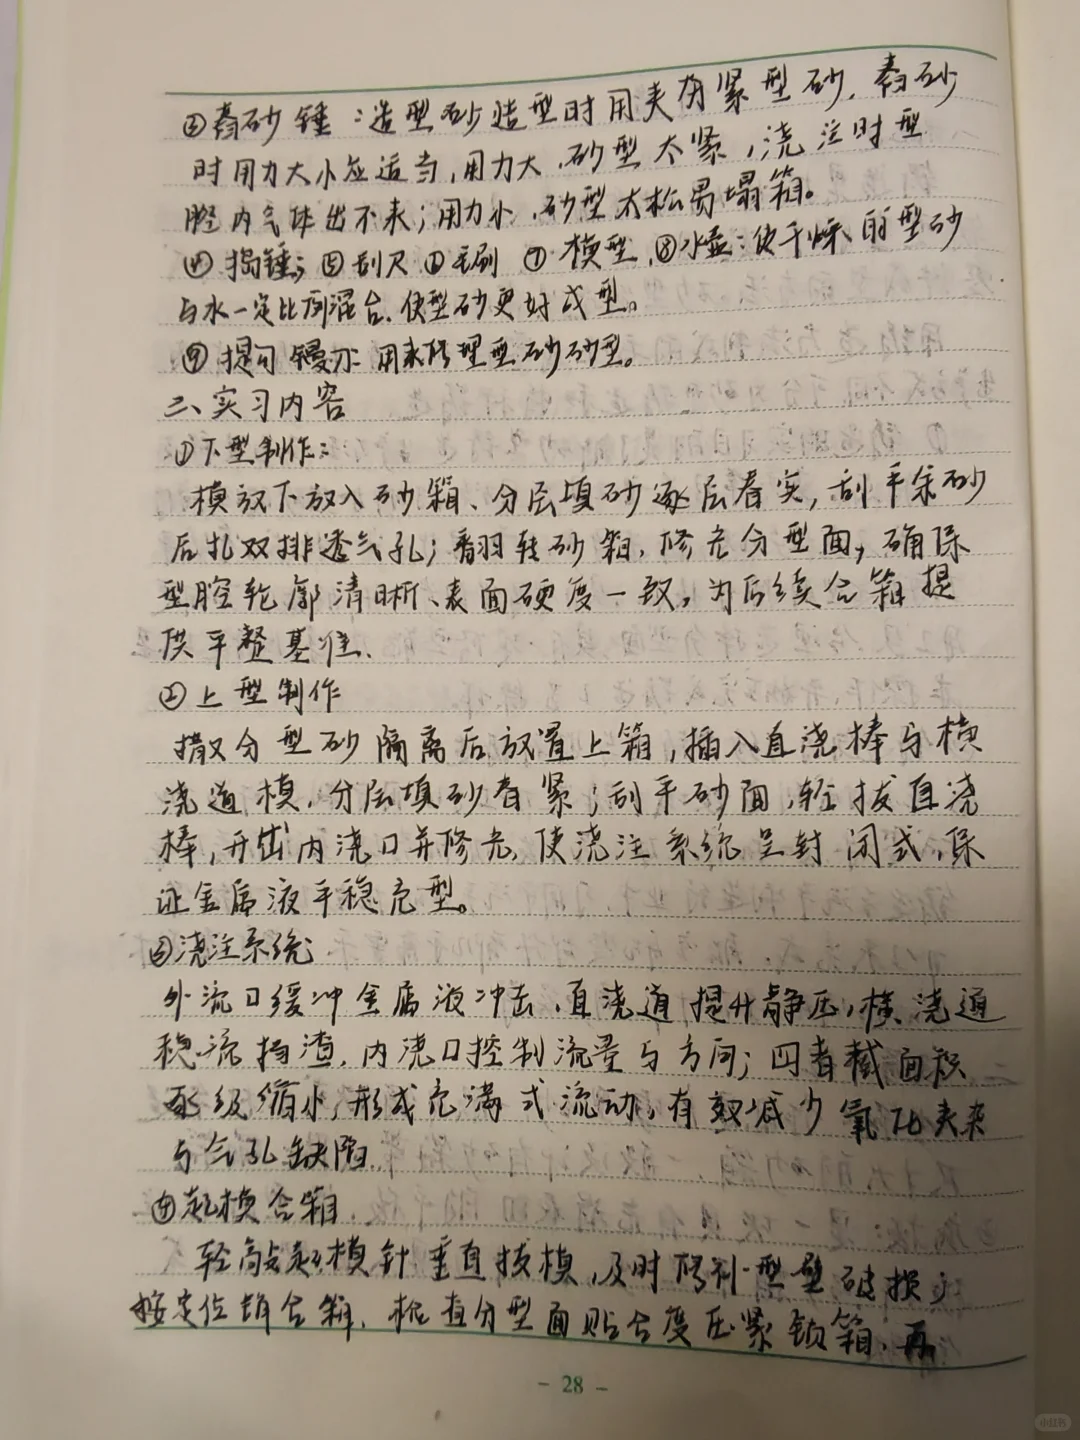 ③舂砂锤：造型砂造型时用来夯紧型砂，舂砂
时用力大小应适当，用力大，砂型太紧，浇注时型
腔内气体出不来；用力小，砂型太松易塌箱。
④捣锤；⑤刮尺⑥毛刷⑦模型，⑧水壶：使干燥的型砂
与水一定比例混合，使型砂更好成型。
⑨提勾镘刀：用来修理型砂砂型。
二、实习内容
①下型制作：
模放下放入砂箱、分层填砂逐层舂实，刮平余砂
后扎双排透气孔；翻转砂箱，修光分型面，确保
型腔轮廓清晰、表面硬度一致，为后续合箱提
供平整基准、
②上型制作
撒分型砂隔离后放置上箱，插入直浇棒与横
浇道模，分层填砂舂紧；刮平砂面，轻拔直浇
棒，开出内浇口并修光，使浇注系统呈封闭式，保
证金属液平稳充型。
③浇注系统
外流口缓冲金属液冲击，直浇道提升静压，横浇道
稳流挡渣，内浇口控制流量与方向；四者截面积
逐级缩小，形成充满式流动，有效减少氧化夹杂
与气孔缺陷
④起模合箱
轻敲起模针垂直拔模，及时修补型壁破损；
按定位销合箱，检查分型面贴合度压紧锁箱，再
- 28 -
小红书